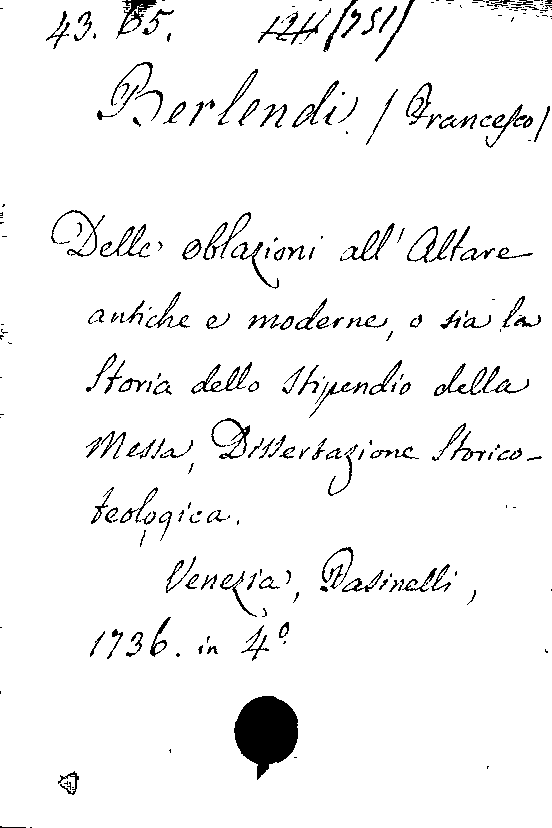 43. 65. 124/751/
Berlendi / Francesco/
Delle oblazioni all' Altare
antiche e moderne, o sia la
Storia dello stipendio della
Messa, Dissertazione Storico-
teologica.
Venezia, Pasinelli,
1736. in 4°